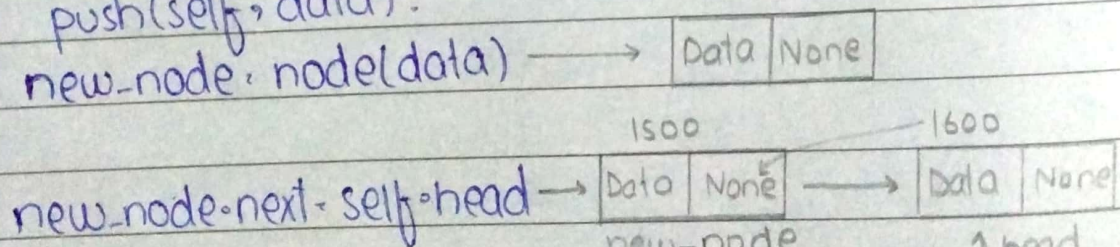 push(self, data):
new_node = node(data) → Data None
1500 1600
new_node.next = self.head → Data None → Data None
new_node head